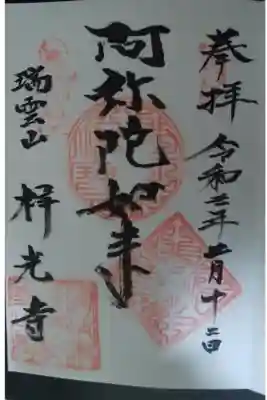 奉拝
令和二年二月十二日
阿弥陀如来
瑞雲山
祥光寺